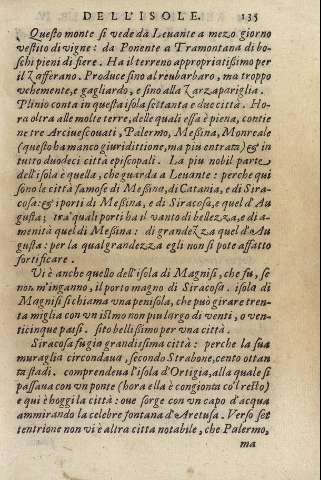 DELL'ISOLE. 135
Questo monte si vede da Leuante a mezo giorno
vestito di vigne: da Ponente a Tramontana di bo-
schi pieni di fiere. Ha il terreno appropriatissimo per
il zafferano. Produce sino al reubarbaro, ma troppo
vehemente, e gagliardo, e sino alla Zarzapariglia.
Plinio conta in questa isola settanta e due città. Ho-
ra oltra alle molte terre, delle quali essa è piena, contie
ne tre Arciuescouati, Palermo, Meßina, Monreale
(questo ha manco giuridittione, ma piu entrata) & in
tutto duodeci città episcopali. La piu nobil parte
dell'isola è quella, che guarda a Leuante: perche qui
sono le città famose di Meßina, di Catania, e di Sira-
cosa: & i porti di Meßina, e di Siracosa, e quel d'Au
gusta; tra' quali porti ha il vanto di bellezza, e di a-
menità quel di Messina: di grandezza quel d'Au-
gusta: per la qual grandezza egli non si pote affatto
fortificare.
Vi è anche quello dell'isola di Magnisi, che fu, se
non m'inganno, il porto magno di Siracosa. isola di
Magnisi si chiama vna penisola, che può girare tren-
ta miglia con vn istmo non piu largo di venti, o ven-
ticinque passi. sito bellissimo per vna città.
Siracosa fu gia grandissima città: perche la sua
muraglia circondaua, secondo Strabone, cento ottan
ta stadi. comprendeua l'isola d'Ortigia, alla quale si
passaua con vn ponte (hora ella è congionta co'l resto)
e qui è hoggi la città: oue sorge con vn capo d'acqua
ammirando la celebre fontana d'Aretusa. Verso set
tentrione non vi è altra città notabile, che Palermo,
ma